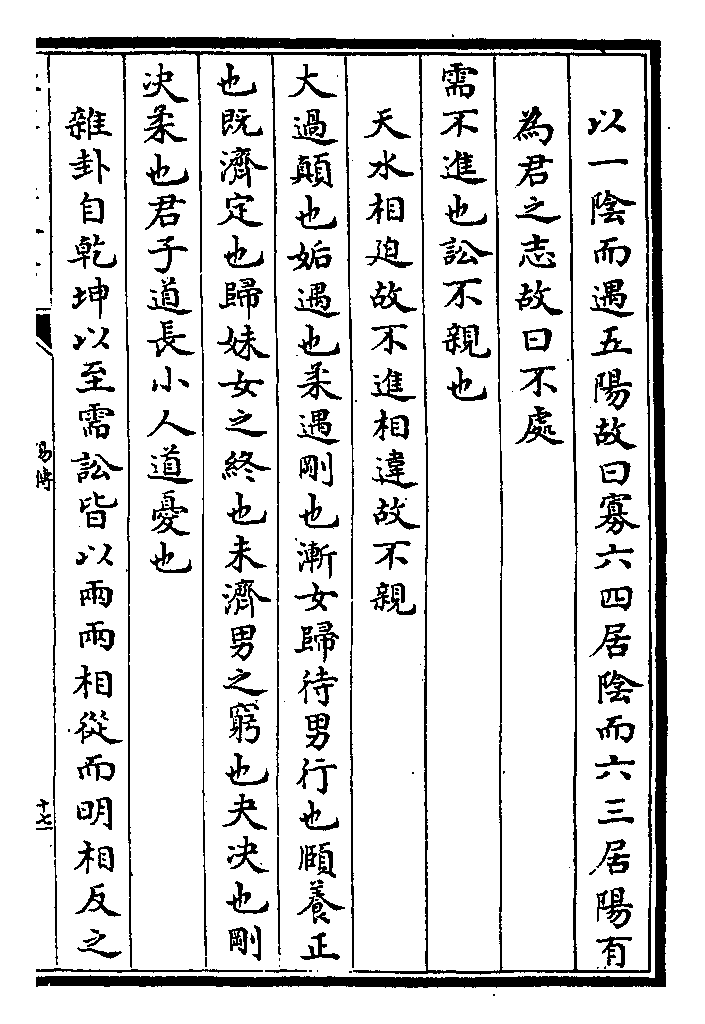 以一陰而遇五陽故曰寡六四居陰而六三居陽有
為君之志故曰不處
需不進也訟不親也
天水相廹故不進相違故不親
大過顛也姤遇也柔遇剛也漸女歸待男行也頤養正
也既濟定也歸妹女之終也未濟男之窮也夬决也剛
决柔也君子道長小人道憂也
雜卦自乾坤以至需訟皆以兩兩相從而明相反之
易傳
十七